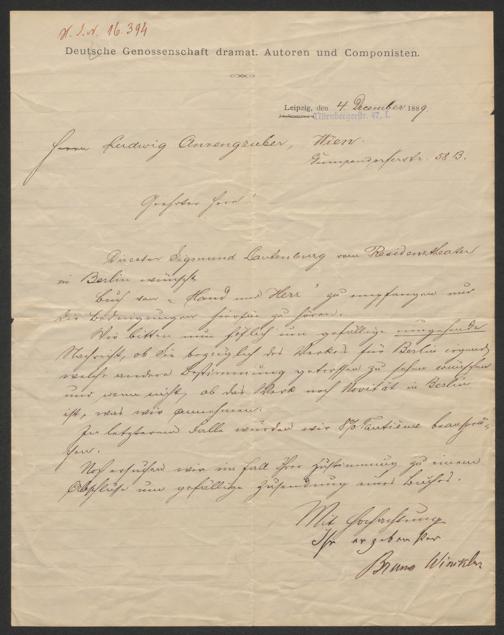 H. I. N. 16.394
Deutsche Genossenschaft dramat. Autoren und Componisten.
Leipzig, den 4. December 1889.
Nürnbergerstr. 47, I.
Herrn Ludwig Anzengruber, Wien.
Gumpendorferstr. 58 B.
Geehrter Herr!
Director Sigmund Lautenburg vom Residenztheater
in Berlin wünscht
Buch von „Hand und Herz" zu empfangen und
die Bedingungen hierfür zu hören.
Wir bitten nun höflich um gefällige umgehende
Nachricht, ob Sie bezüglich des Werkes für Berlin irgend
welche andere Bestimmung getroffen zu sehen wünschen
und wenn nicht, ob das Werk noch Novität in Berlin
ist, was wir annehmen.
Im letzteren Falle würden wir 8% Tantième beanspru-
chen.
Noch ersuchen wir im Fall Ihrer Zustimmung zu einem
Abschluße um gefällige Zusendung eines Buches.
Mit Hochachtung
Ihr ergebenster
Bruno Winkler